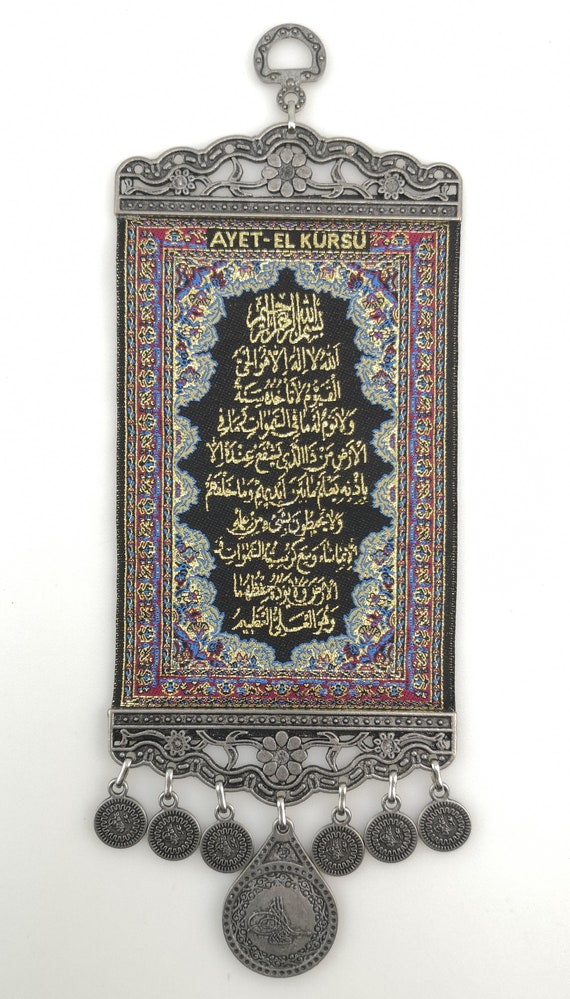 AYET-EL KÜRSÜ
بسم الله الرحمن الرحيم
الله لا اله الا هو الحي
القيوم لا تأخذه سنة
ولا نوم له ما في السموات وما في
الارض من ذا الذي يشفع عنده الا
باذنه يعلم ما بين ايديهم وما خلفهم
ولا يحيطون بشيء من علمه
الا بما شاء وسع كرسيه السموات و
الارض ولا يؤده حفظهما
وهو العلي العظيم